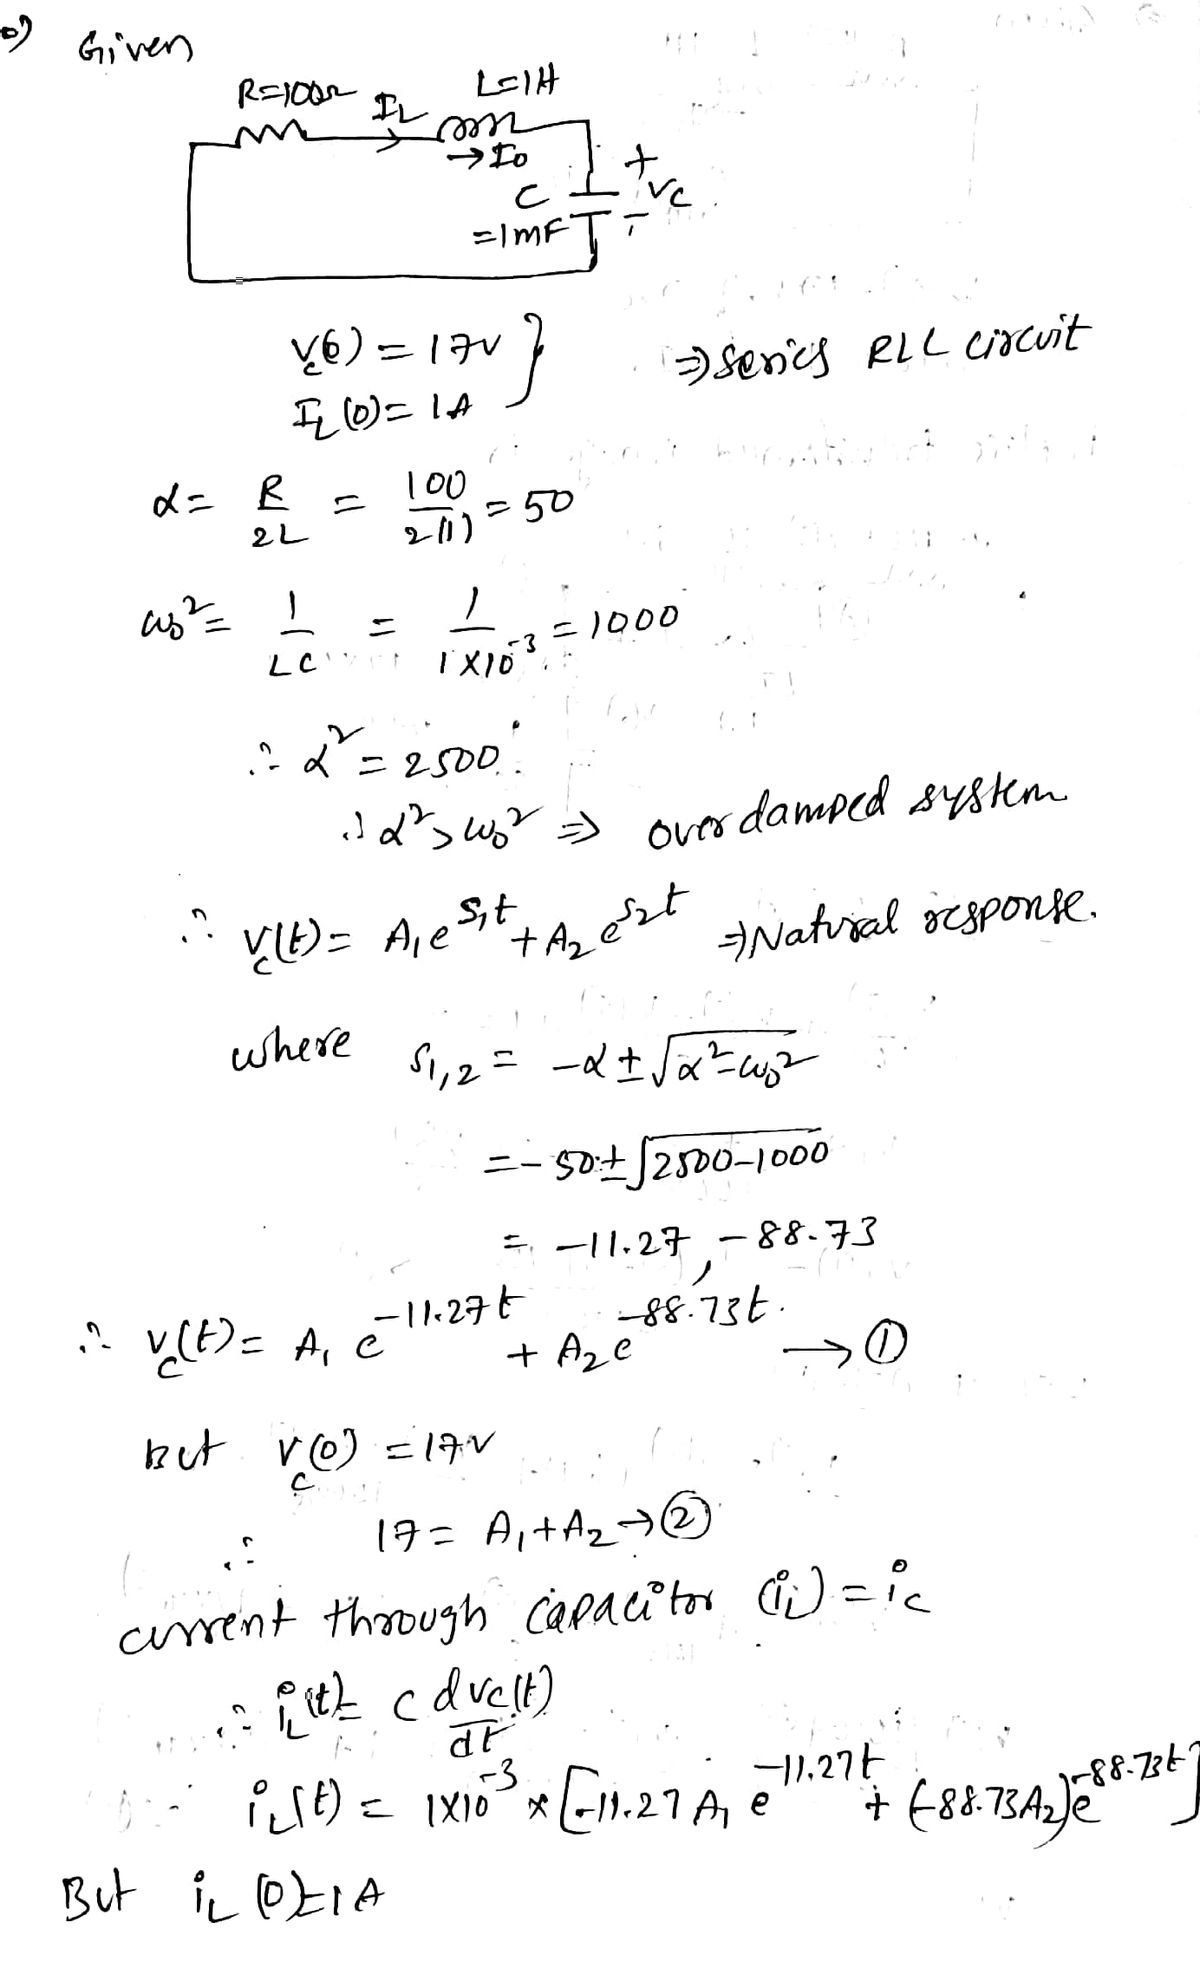 o) Given
R=100Ω I_L L=1H
→ I₀
C + V_C -
=1mF
V_C(0) = 17V } ⇒ series RLC circuit
I_L(0) = 1A
α = R/2L = 100/2(1) = 50
ω₀² = 1/LC = 1/1×10⁻³ = 1000
∴ α² = 2500
∴ α² > ω₀² ⇒ over damped system
∴ V_C(t) = A₁e^{S₁t} + A₂e^{S₂t} ⇒ Natural response.
where S₁,₂ = -α ± √α²-ω₀²
= -50 ± √2500-1000
= -11.27, -88.73
∴ V_C(t) = A₁e^{-11.27t} + A₂e^{-88.73t} → ①
But V_C(0) = 17V
∴ 17 = A₁+A₂ → ②
current through capacitor (i_L) = i_C
∴ i_L(t) = C dV_C(t)/dt
i_L(t) = 1×10⁻³ × [-11.27 A₁ e^{-11.27t} + (-88.73A₂)e^{-88.73t}]
But i_L(0) = 1A